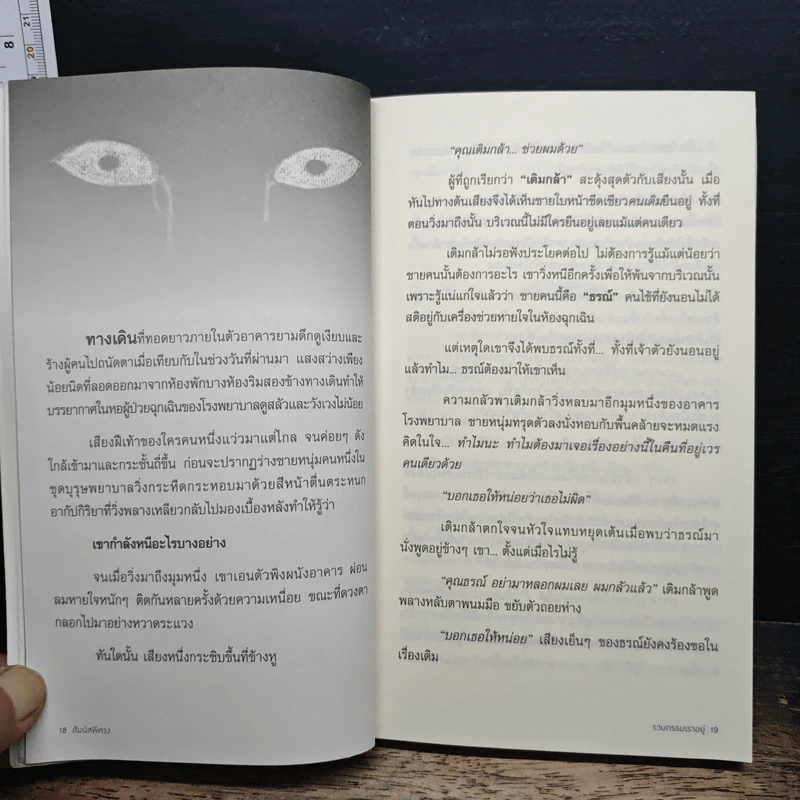 8
20
21
ทางเดินที่ทอดยาวภายในตัวอาคารยามดึกดูเงียบและ
ร้างผู้คนไปถนัดตาเมื่อเทียบกับในช่วงวันที่ผ่านมา แสงสว่างเพียง
น้อยนิดที่ลอดออกมาจากห้องพักบางห้องริมสองข้างทางเดินทำให้
บรรยากาศในหอผู้ป่วยฉุกเฉินของโรงพยาบาลดูสลัวและวังเวงไม่น้อย
เสียงฝีเท้าของใครคนหนึ่งแว่วมาแต่ไกล จนค่อยๆ ดัง
ใกล้เข้ามาและกระชั้นถี่ขึ้น ก่อนจะปรากฏร่างชายหนุ่มคนหนึ่งใน
ชุดบุรุษพยาบาลวิ่งกระหืดกระหอบมาด้วยสีหน้าตื่นตระหนก
อากัปกิริยาที่วิ่งพลางเหลียวกลับไปมองเบื้องหลังทำให้รู้ว่า
เขากำลังหนีอะไรบางอย่าง
จนเมื่อวิ่งมาถึงมุมหนึ่ง เขาเอนตัวพิงผนังอาคาร ผ่อน
ลมหายใจหนักๆ ติดกันหลายครั้งด้วยความเหนื่อย ขณะที่ดวงตา
กลอกไปมาอย่างหวาดระแวง
ทันใดนั้น เสียงหนึ่งกระซิบขึ้นที่ข้างหู
18 สัมผัสพิศวง
“คุณเติมกล้า... ช่วยผมด้วย”
ผู้ที่ถูกเรียกว่า “เติมกล้า” สะดุ้งสุดตัวกับเสียงนั้น เมื่อ
หันไปทางต้นเสียงจึงได้เห็นชายใบหน้าซีดเซียวคนเดิมยืนอยู่ ทั้งที่
ตอนวิ่งมาถึงนั้น บริเวณนี้ไม่มีใครยืนอยู่เลยแม้แต่คนเดียว
เติมกล้าไม่รอฟังประโยคต่อไป ไม่ต้องการรู้แม้แต่น้อยว่า
ชายคนนั้นต้องการอะไร เขาวิ่งหนีอีกครั้งเพื่อให้พ้นจากบริเวณนั้น
เพราะรู้แน่แก่ใจแล้วว่า ชายคนนี้คือ “ธรณ์” คนไข้ที่ยังนอนไม่ได้
สติอยู่กับเครื่องช่วยหายใจในห้องฉุกเฉิน
แต่เหตุใดเขาจึงได้พบธรณ์ที่... ทั้งที่เจ้าตัวยังนอนอยู่
แล้วทำไม... ธรณ์ต้องมาให้เขาเห็น
ความกลัวพาเติมกล้าวิ่งหลบมาอีกมุมหนึ่งของอาคาร
โรงพยาบาล ชายหนุ่มทรุดตัวลงนั่งหอบกับพื้นคล้ายจะหมดแรง
คิดในใจ... ทำไมนะ ทำไมต้องมาเจอเรื่องอย่างนี้ในคืนที่อยู่เวร
คนเดียวด้วย
“บอกเธอให้หน่อยว่าเธอไม่ผิด”
เติมกล้าตกใจจนหัวใจแทบหยุดเต้นเมื่อพบว่าธรณ์มา
นั่งพูดอยู่ข้างๆ เขา... ตั้งแต่เมื่อไรไม่รู้
“คุณธรณ์ อย่ามาหลอกผมเลย ผมกลัวแล้ว” เติมกล้าพูด
พลางหลับตาพนมมือ ขยับตัวถอยห่าง
“บอกเธอให้หน่อย” เสียงเย็นๆ ของธรณ์ยังคงร้องขอใน
เรื่องเดิม
รวมกรรมเราอยู่ 19